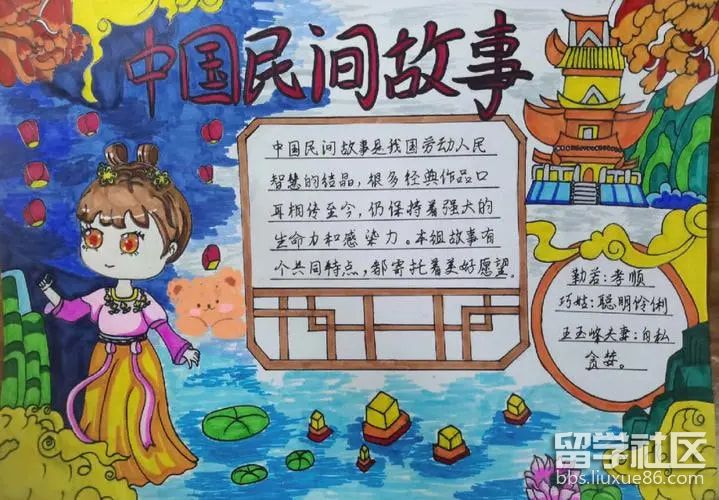 中国民间故事
中国民间故事是我国劳动人民
智慧的结晶，很多经典作品口
耳相传至今，仍保持着强大的
生命力和感染力。本组故事有
个共同特点，都寄托着美好愿望。
勤若：孝顺
巧姑：聪明伶俐
夫妻：自私
贪婪。
留学社区
bbs.liuxue86.com